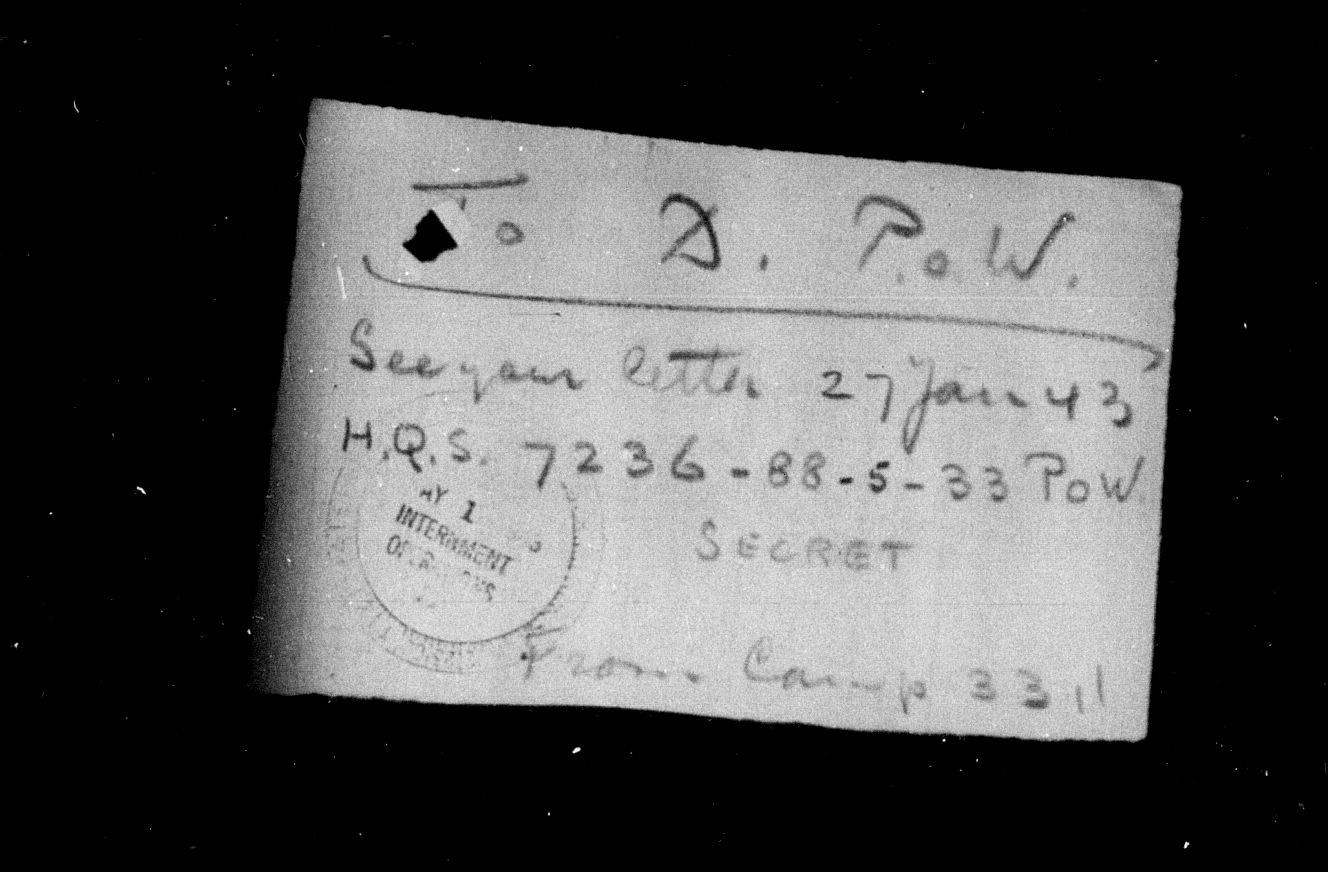 To D. P.o.W.
See your letter 27 Jan 43
H.Q.S. 7236-88-5-33 PoW
AY 1
INTERNMENT
OPERATIONS
SECRET
From Camp 33